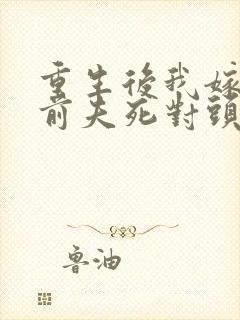 重生後我嫁
前夫死對頭
魯油